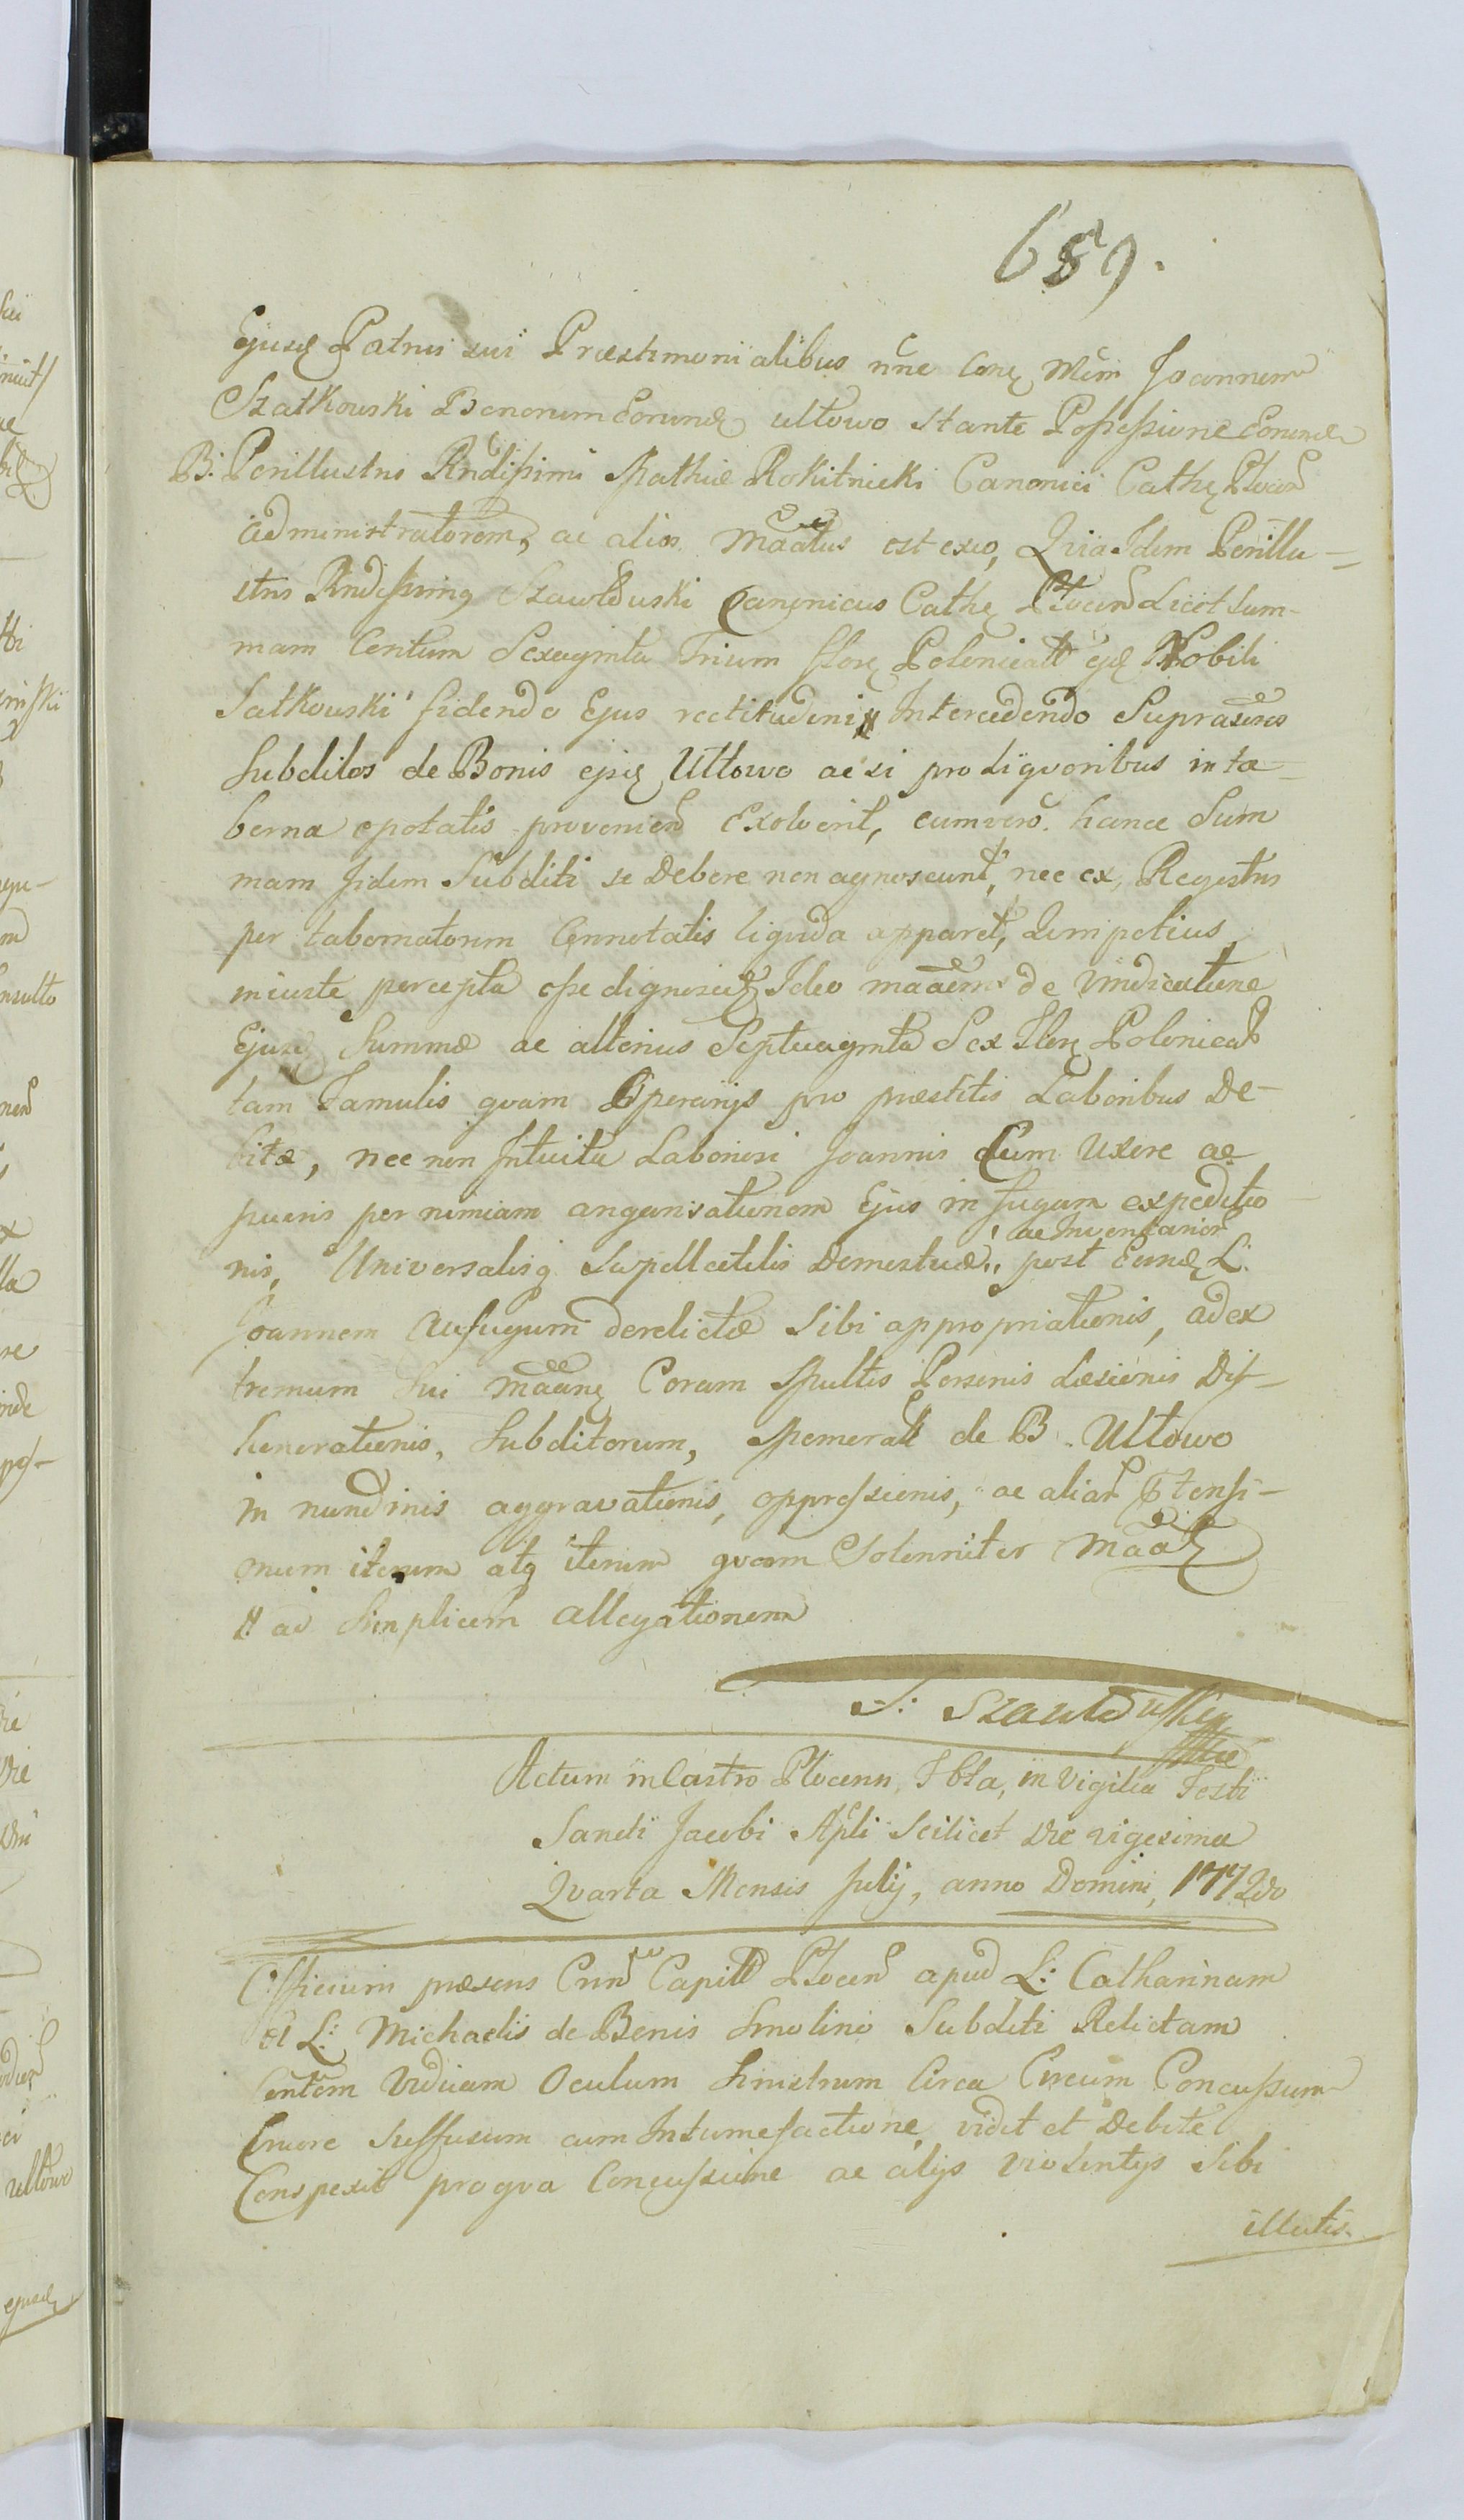 659.
Ejusq Patrui sui Præstimonialibus nne Conq Mcin Joannem
Szatkowski Bonorum Eorundq Ułtowo stante Possessione Eorundq
B: Perillustris Rndissimi Mathiæ Rokitnicki Canonici Cathq Płocen
administratorem, ac alios maatus est exeo, Quia Idem Perillu-
stris Rndissimq Szawłduski Canonicus Cathq Płocen Licet Sum-
mam Centum Sexaginta Trium florq Polonicall ejq Nobili
Satkowski fidendo Ejus rectitudini Intercedendo Supra
Subditos de Bonis ejsq Ułtowo acsi pro Liqvoribus in ta-
berna epotatis provenien Exolverit, cumvero hance Sum
mam Jidem Subditi se Debere non agnoscunt, nec ex, Regestris
per tabernatorum Connotatis liqvida apparet, Qvin potius
iniuste percepta esse dignoscitq Ideo maaem de vindicatione
Ejusq Summæ ac alterius Septuaginta Sex Florq Polonical
tam Famulis qvam Operarijs pro præstitis Laboribus De-
bitæ, nec non Intuitu Laboriosi Joannis Cum Uxore ac
pueris per nimiam angarisationem Ejus in fugam expeditio
nis, Universalisq Supellectilis Domesticæ,, ac Inventarior post Eundq L:
Joannem Aufugum derelictæ Sibi appropriationis, ad ex
tremum Sui maanq Coram Multis Personis Læsionis Dis-
honorationis, Subditorum, Memorall de B. Ułtowo
in nundinis aggravationis, oppressionis, ac aliar Ptensi-
onum iterum atq iterum qvam Solenniter maatq
ad Simplicem allegationem
J: Szawłduski
Actum in Castro Płocenn, Fbta, in Vigilia Festi
Sancti Jacobi Apli Scilicet Die vigesima
Qvarta Mensis Julij, anno Domini, 1772do
Officium præsens Cnn Capitll Płocen apud L: Catharinam
ol L: Michaelis de Bonis Smolino Subditi Relictam
Viduam Oculum Sinistrum Circa Circum Concussum
Cruore Suffusum cum Intumefactione, vidit et Debite
Conspexit pro qva Concussione ac alijs violentijs Sibi
illatis.